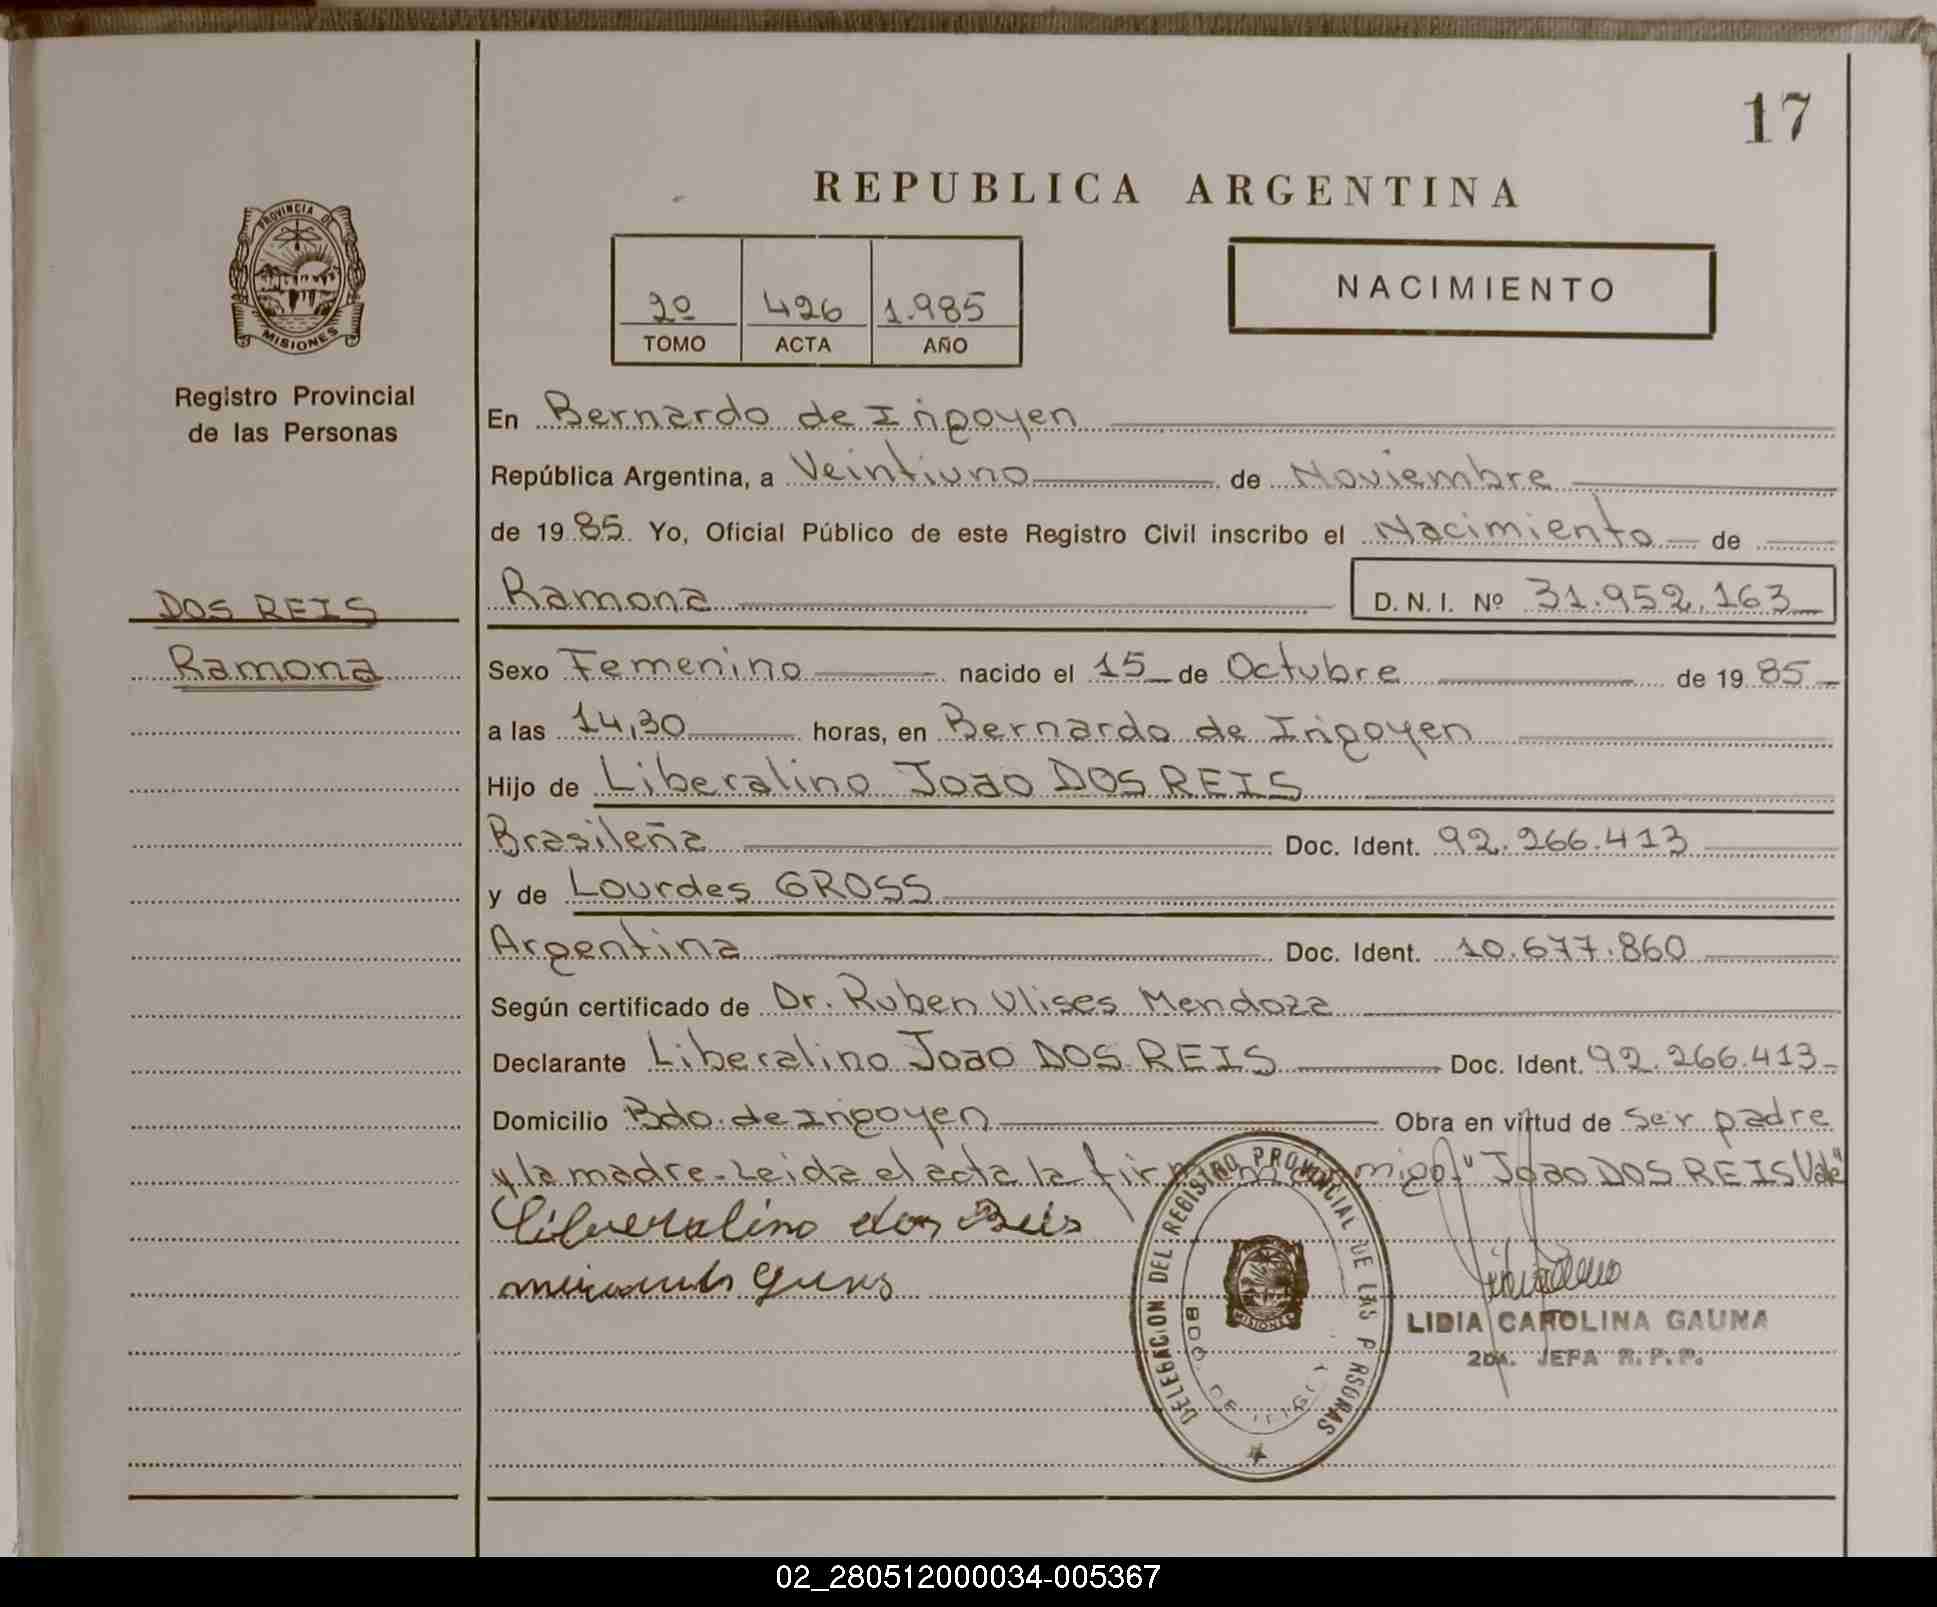 17
REPUBLICA ARGENTINA
PROVINCIA DE
MISIONES
2º 426 1.985
TOMO ACTA AÑO
NACIMIENTO
Registro Provincial
de las Personas
En Bernardo de Irigoyen
República Argentina, a Veintiuno de Noviembre
de 1985 Yo, Oficial Público de este Registro Civil inscribo el Nacimiento de
DOS REIS
Ramona D.N.I. Nº 31.952.163
Ramona
Sexo Femenino nacido el 15 de Octubre de 1985
a las 14,30 horas, en Bernardo de Irigoyen
Hijo de Liberalino Joao DOS REIS
Brasileña Doc. Ident. 92.266.413
y de Lourdes GROSS
Argentina Doc. Ident. 10.677.860
Según certificado de Dr. Ruben Ulises Mendoza
Declarante Liberalino Joao DOS REIS Doc. Ident. 92.266.413
Domicilio Bdo. de Irigoyen Obra en virtud de ser padre
y la madre - Leida el acta la firman conmigo/ "Joao DOS REIS Vale"
Liberalino dos Reis
DELEGACION DEL REGISTRO PROVINCIAL DE LAS P RSONAS
BDO. DE
MISIONES
LIDIA CAROLINA GAUNA
2DA. JEFA R.P.P.
02_280512000034-005367